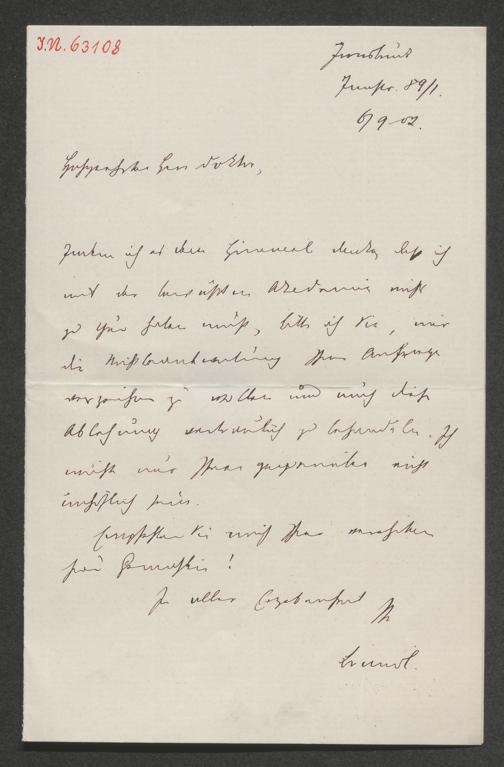 I.N. 63108
Innsbruck
Innstr. 89/I.
6/9 02.
Hochgeehrter Herr Doktor,
Indem ich es dem Himmel danke, daß ich
mit der Akademie nicht
zu thun haben muß, bitte ich Sie, mir
die Nichtbeantwortung Ihrer Anfrage
verzeihen zu wollen und auch diese
Ablehnung vertraulich zu behandeln. Ich
möchte nur Ihnen gegenüber nicht
unhöflich sein.
Empfehlen Sie mich Ihrer verehrten
Frau Gemahlin!
In aller Ergebenheit Ihr